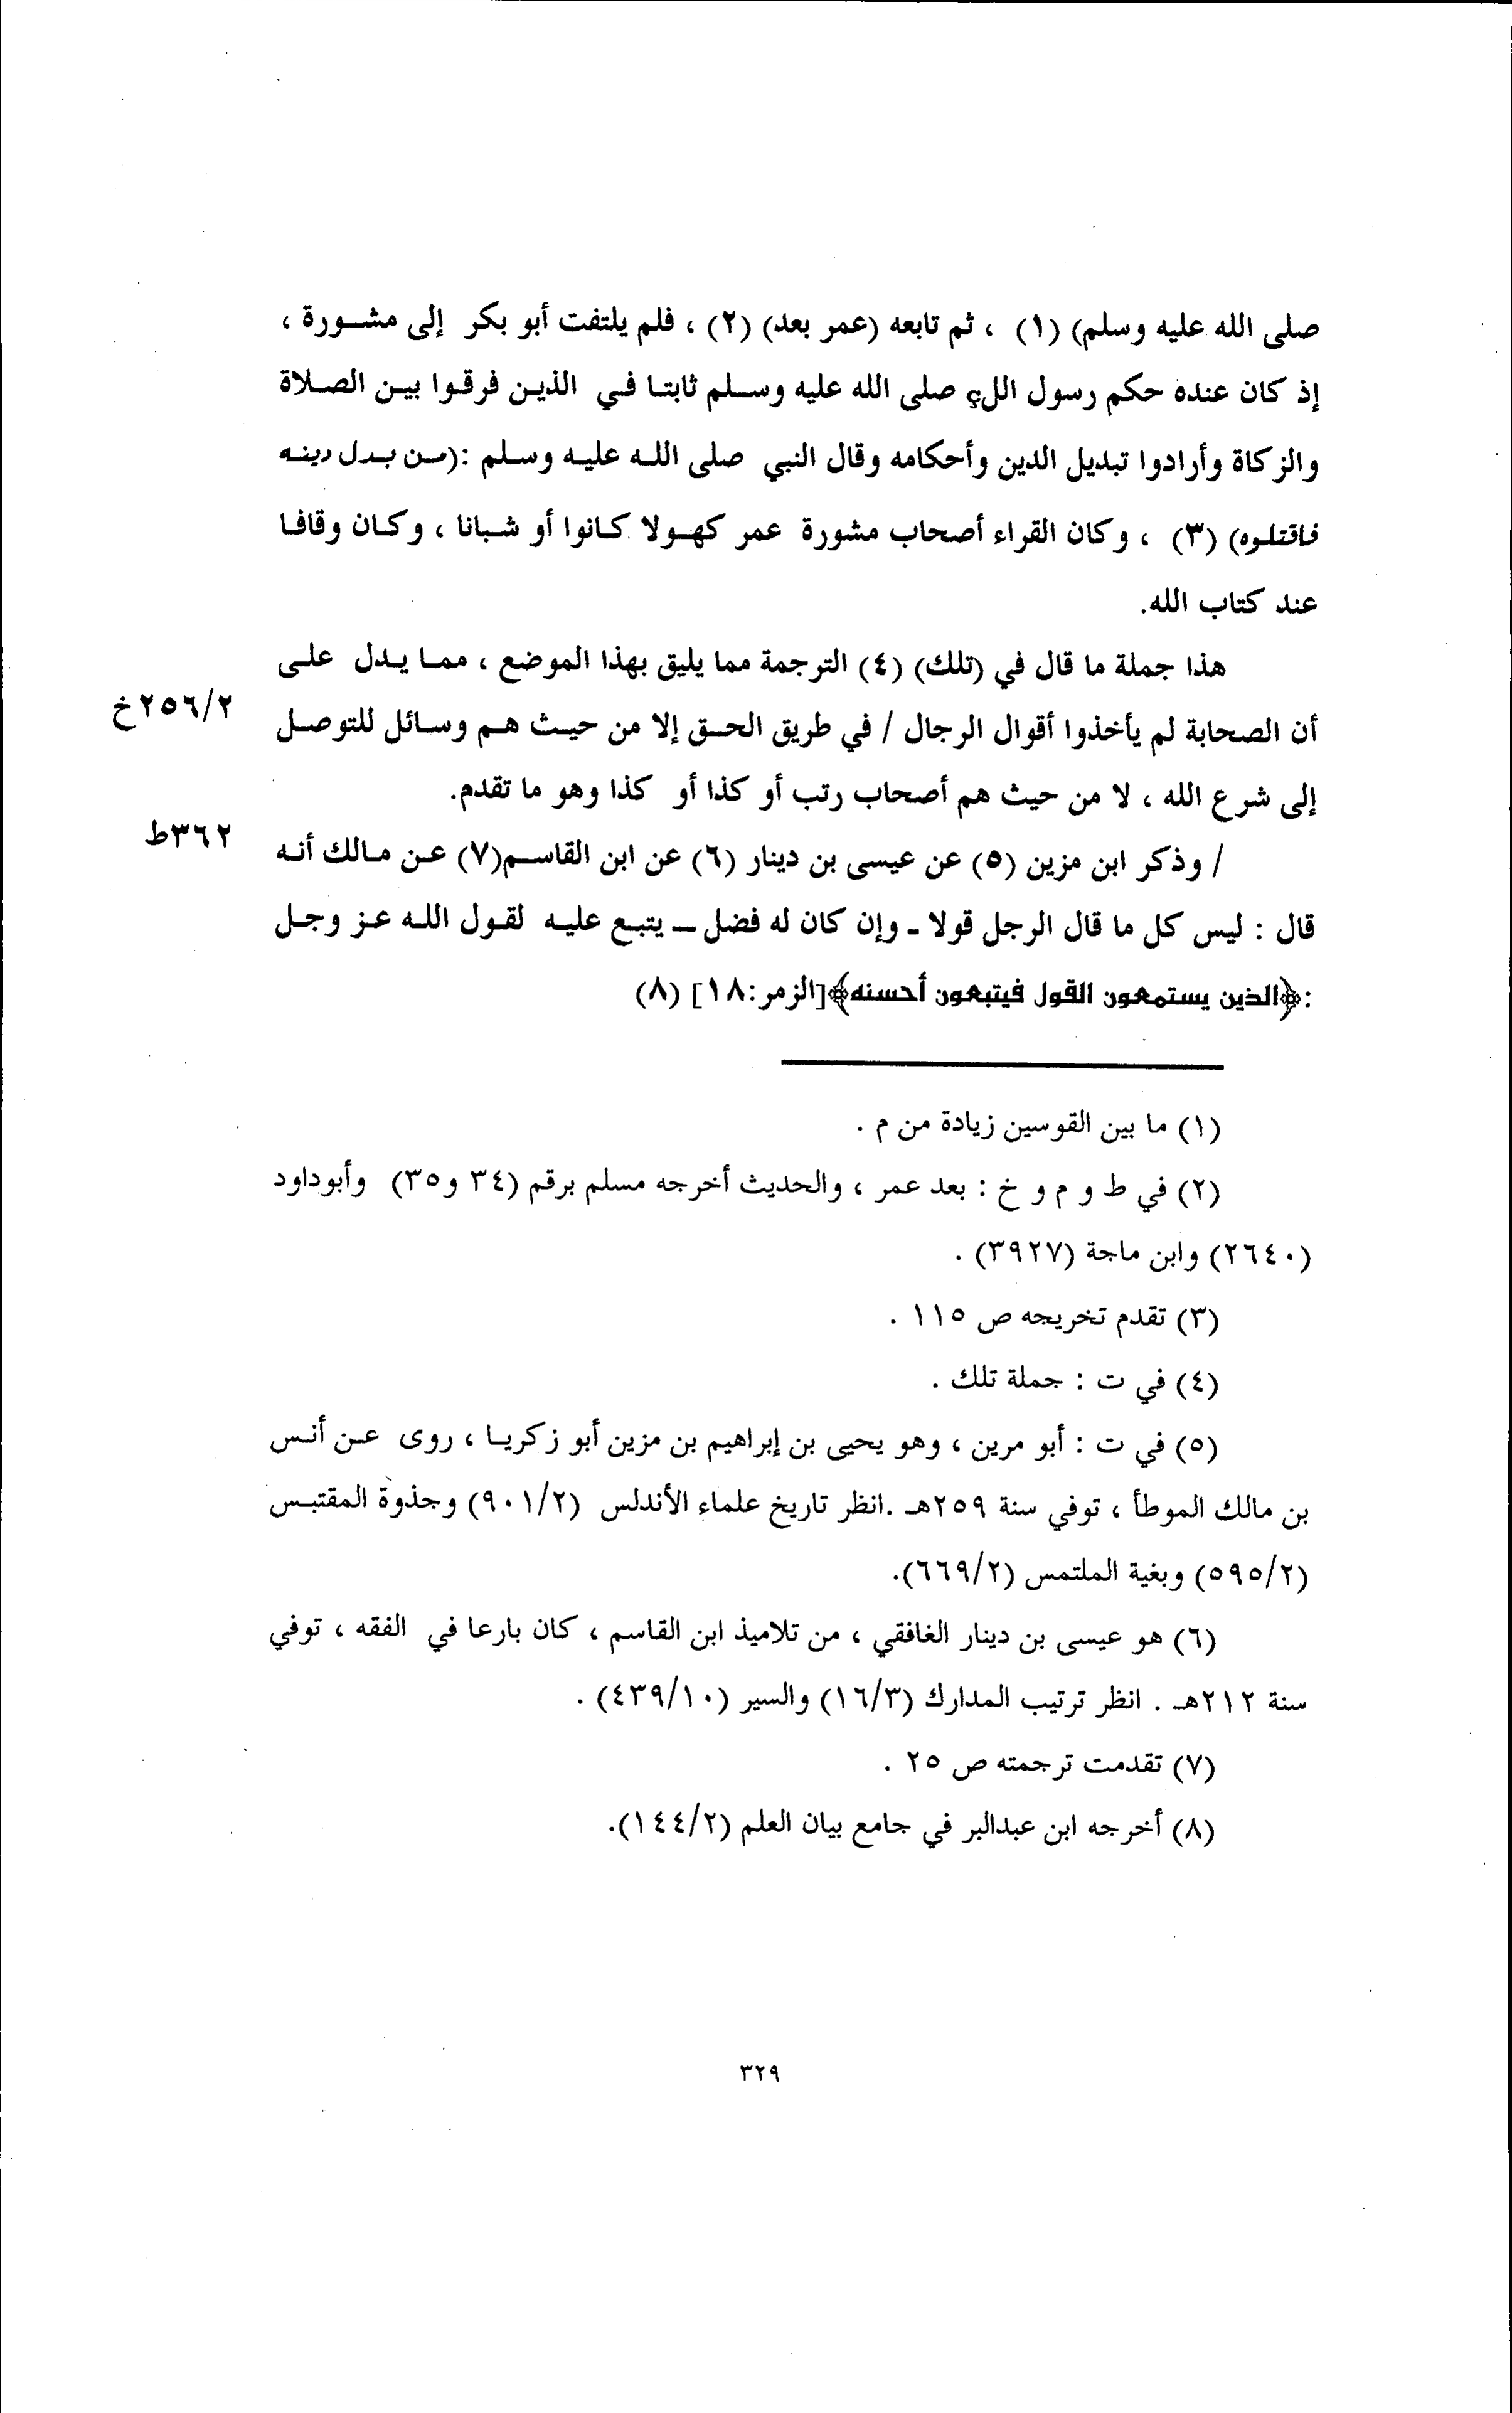 صلى الله عليه وسلم) (١) ، ثم تابعه (عمر بعد) (٢) ، فلم يلتفت أبو بكر إلى مشورة ،
إذ كان عنده حكم رسول الله صلى الله عليه وسلم ثابتا في الذين فرقوا بين الصلاة
والزكاة وأرادوا تبديل الدين وأحكامه وقال النبي صلى الله عليه وسلم :(من بدل دينه
فاقتلوه) (٣) ، وكان القراء أصحاب مشورة عمر كهولا كانوا أو شبانا ، وكان وقافا
عند كتاب الله.
هذا جملة ما قال في (تلك) (٤) الترجمة مما يليق بهذا الموضع ، مما يدل على
٢٥٦/٢خ
أن الصحابة لم يأخذوا أقوال الرجال / في طريق الحق إلا من حيث هم وسائل للتوصل
إلى شرع الله ، لا من حيث هم أصحاب رتب أو كذا أو كذا وهو ما تقدم.
٣٦٢ط
/ وذكر ابن مزين (٥) عن عيسى بن دينار (٦) عن ابن القاسم(٧) عن مالك أنه
قال : ليس كل ما قال الرجل قولا - وإن كان له فضل – يتبع عليه لقول الله عز وجل
:﴿الذين يستمعون القول فيتبعون أحسنه﴾[الزمر:١٨] (٨)
(١) ما بين القوسين زيادة من م .
(٢) في ط و م و خ : بعد عمر ، والحديث أخرجه مسلم برقم (٣٤ و٣٥) وأبوداود
(٢٦٤٠) وابن ماجة (٣٩٢٧) .
(٣) تقدم تخريجه ص ١١٥ .
(٤) في ت : جملة تلك .
(٥) في ت : أبو مرين ، وهو يحيى بن إبراهيم بن مزين أبو زكريا ، روى عن أنس
بن مالك الموطأ ، توفي سنة ٢٥٩هـ .انظر تاريخ علماء الأندلس (٩٠١/٢) وجذوة المقتبس
(٥٩٥/٢) وبغية الملتمس (٦٦٩/٢).
(٦) هو عيسى بن دينار الغافقي ، من تلاميذ ابن القاسم ، كان بارعا في الفقه ، توفي
سنة ٢١٢هـ . انظر ترتيب المدارك (١٦/٣) والسير (٤٣٩/١٠) .
(٧) تقدمت ترجمته ص ٢٥ .
(٨) أخرجه ابن عبدالبر في جامع بيان العلم (١٤٤/٢).
٣٢٩